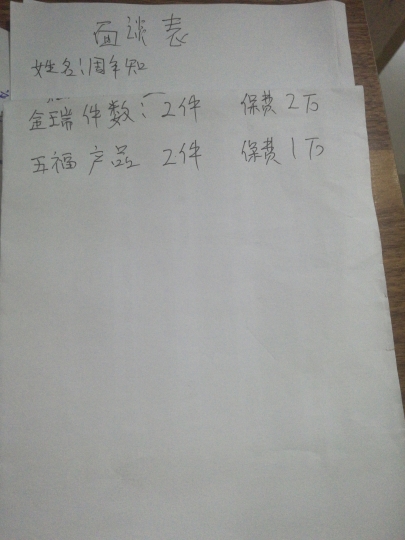 面谈表
姓名:周年知
金瑞件数:2件 保费2万
五福产品 2件 保费1万